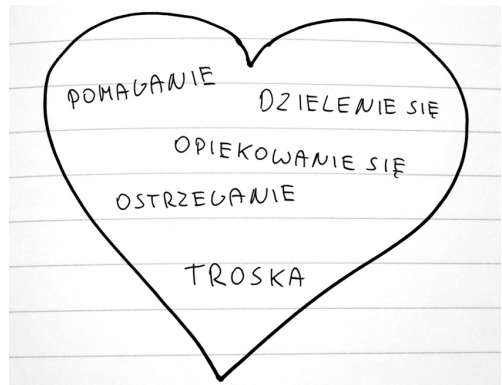 POMAGANIE
DZIELENIE SIĘ
OPIEKOWANIE SIĘ
OSTRZEGANIE
TROSKA